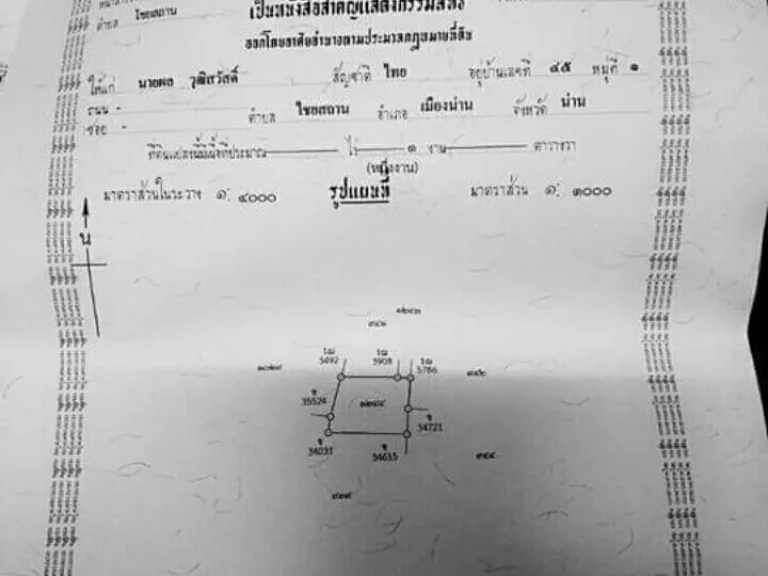 ตำบล ไชยสถาน
เป็นหนังสือสำคัญแสดงกรรมสิทธิ์
ออกโดยอาศัยอำนาจตามประมวลกฎหมายที่ดิน
ให้แก่ นายผล วุฒิสวัสดิ์ สัญชาติ ไทย อยู่บ้านเลขที่ ๔๕ หมู่ที่ ๑
ถนน - ตำบล ไชยสถาน อำเภอ เมืองน่าน จังหวัด น่าน
ซอย -
ที่ดินแปลงนี้มีเนื้อที่ประมาณ ไร่ ๑ งาน ตารางวา
(หนึ่งงาน)
มาตราส่วนในระวาง ๑: ๔๐๐๐ รูปแผนที่ มาตราส่วน ๑: ๑๐๐๐
น
5492 5908 5786
35524
34721
34031 34615